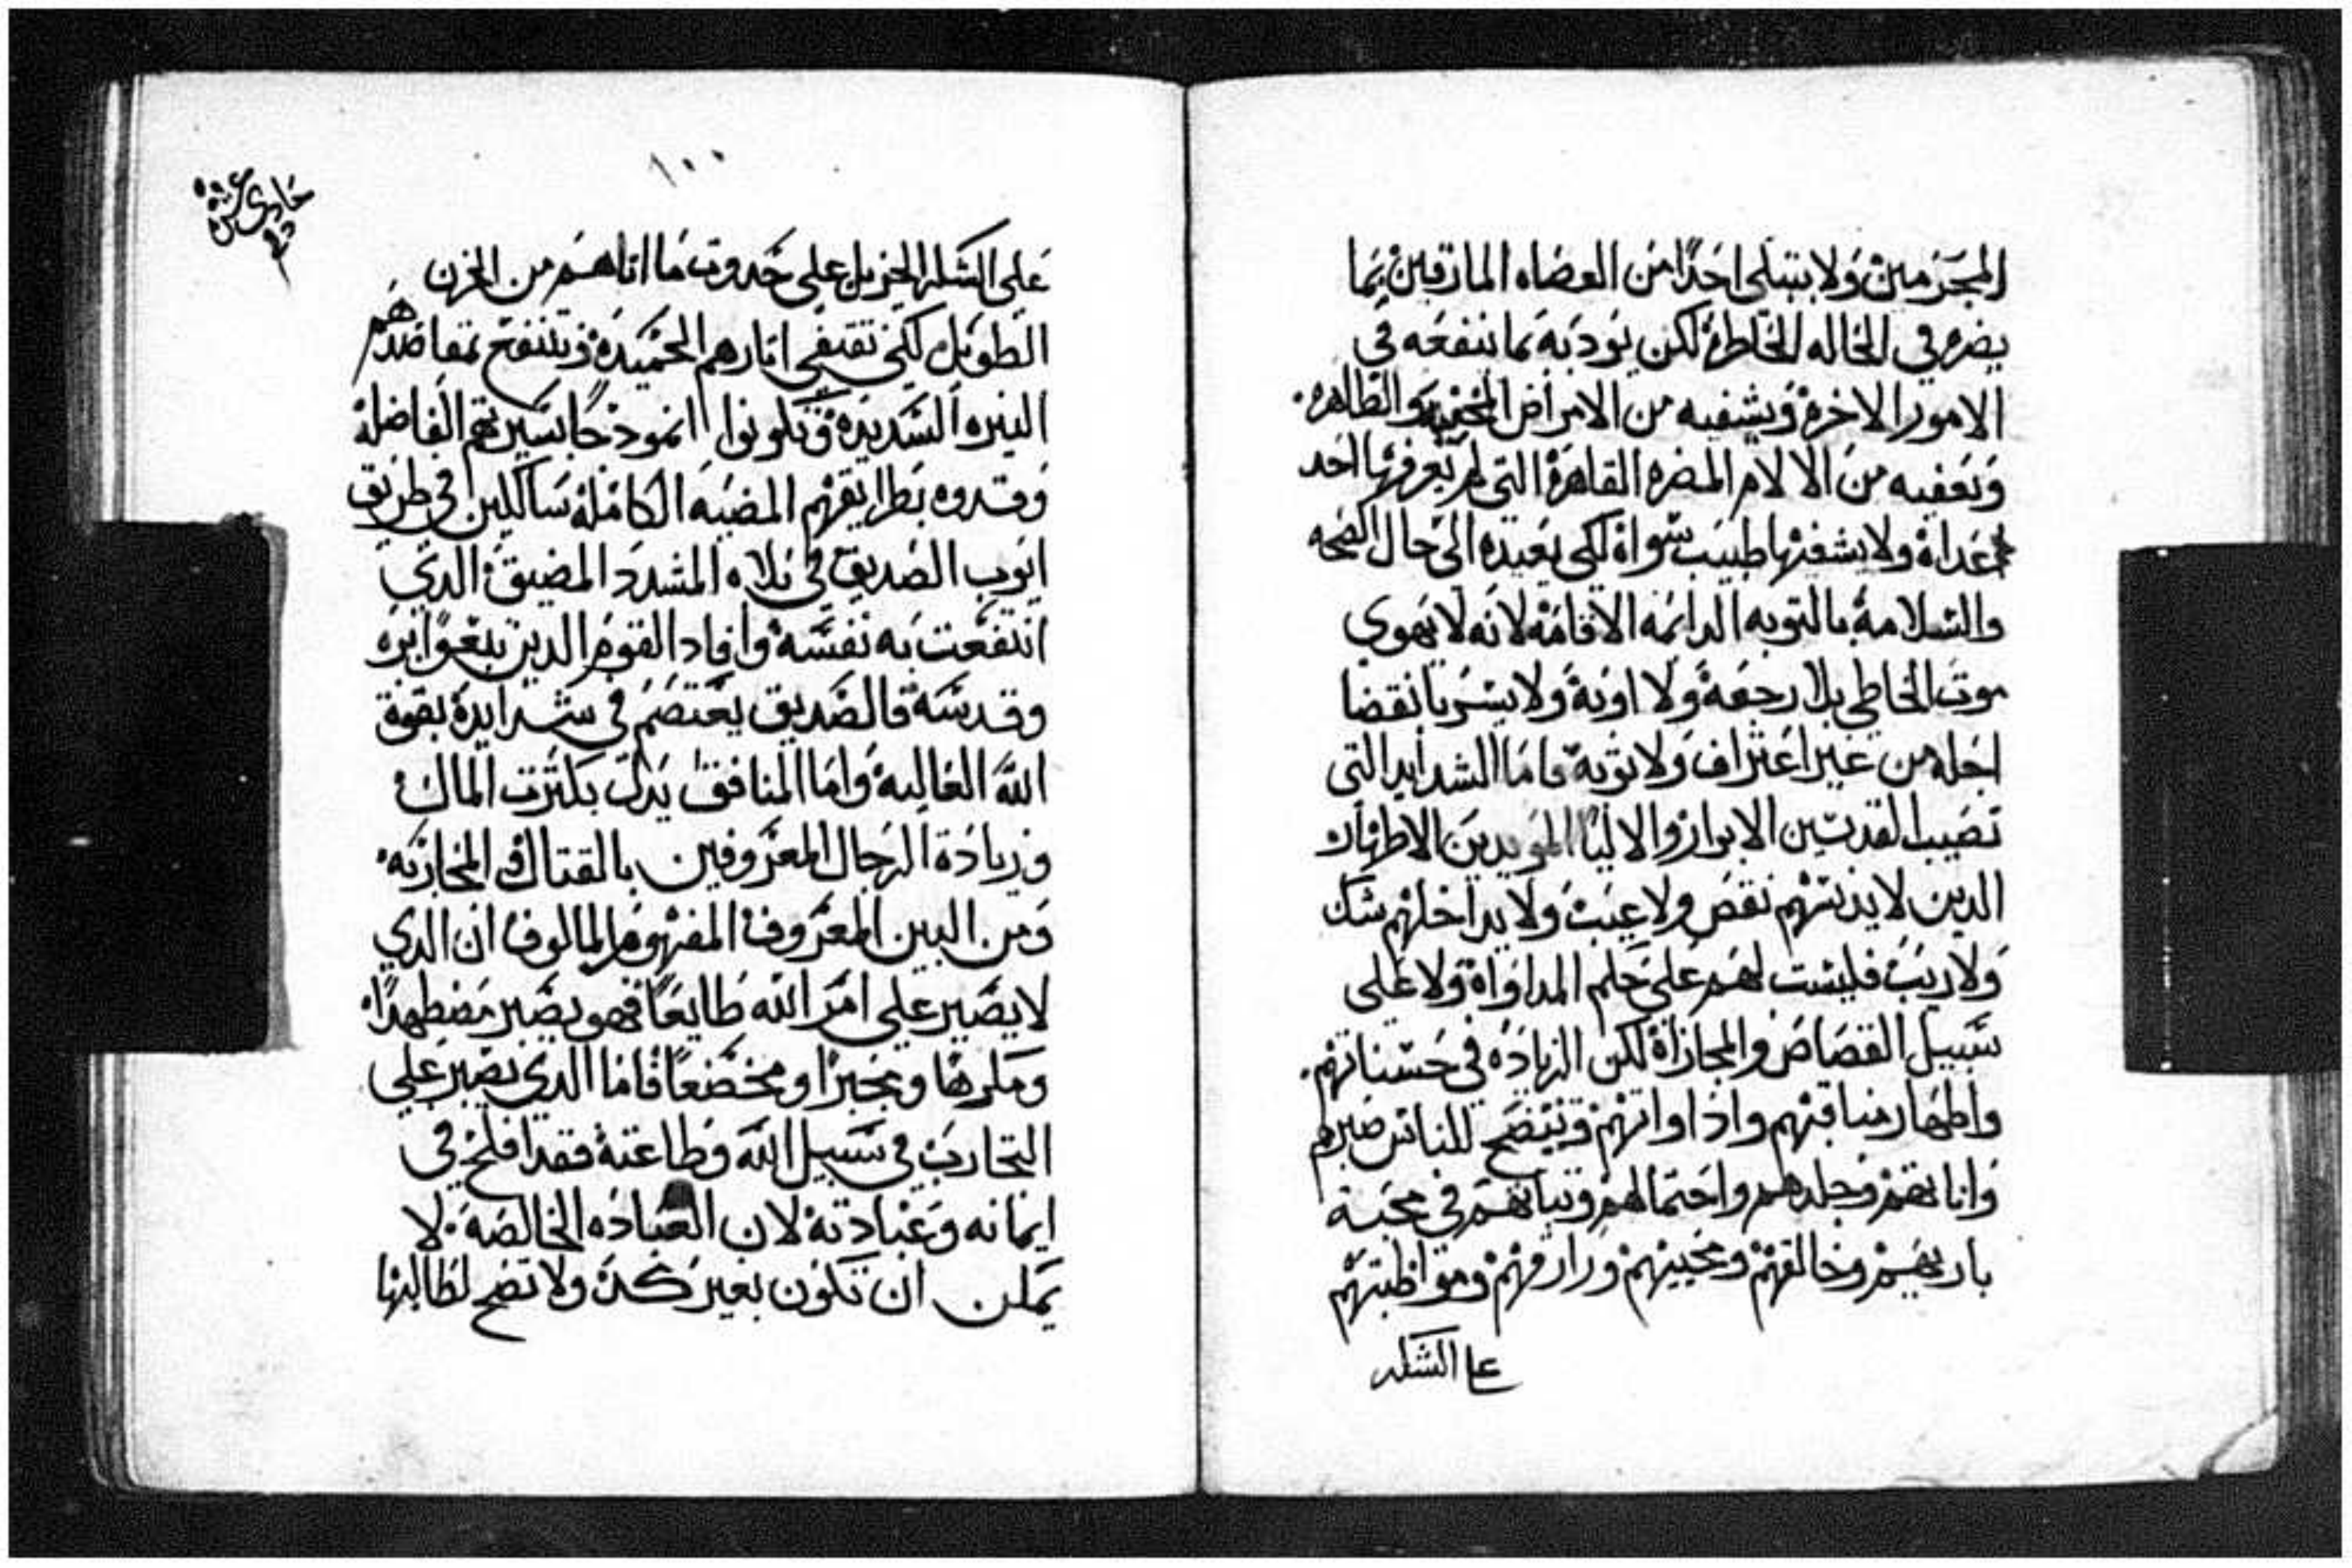 المجرمين ولا يبتلى احدًا من العصاه المارقين بما
يضره في الحاله الحاطرة لكن يودبه بما ينفعه في
الامور الاخرة ويشفيه من الامراض المخفيه والظاهره.
وتعفيه من الالام المضره القاهرة التي لم يعرفها احد
عداه ولا يشفيها طبيب سواة لكى يعيده الى حال الصحه
والسلامة بالتوبه الدايمه الاقامة لانه لا يهوي
موت الخاطي بلا رجعة ولا اوبة ولا يسر بانقضا
اجله من غير اعتراف ولا توبة فاما الشدايد التي
تصيب القديسين الابرار والاليا المويدين الاطهار
الدين لا يدنسهم نقص ولا عيب ولا يداخلهم شك
ولا ريب فليست لهم على حلم المداواة ولا على
سبيل القصاص والمجازاة لكن الزياده في حسناتهم.
واظهار مناقبهم واداواتهم ويتضح للناس صبرهم
واناتهم وجلدهم واحتمالهم وتباتهم في محبة
باريهم وخالقهم ومحييهم ورازقهم ومواظبتهم
على الشكر
١٠٠
حادي عشره
على الشكر الجزيل على حدوت ما اتاهم من الحزن
الطويل لكي تقتفي اتارهم الحميدة وتنتفع بمقاصدهم
النيره السديدة وتكونوا انمودجًا بسيرتهم الفاضلة
وقدوه بطرايقهم المضيه الكاملة سالكين في طريق
ايوب الصديق في بلاه المشدد المضيق الدي
انتفعت به نفسة وافاد القوم الدين تبعوا بره
وقدسة فالصديق يعتصم في شدايدة بقوة
الله الغالبة واما المنافق يدل بكترت المال
وزيادة الرجال المعروفين بالقتال والمحاربه.
ومن البين المعروف المفهوم المالوف ان الدي
لا يصبر على امر الله طايعًا فهو يصبر مضطهدًا.
ومكرها ومجبرًا ومخضعًا فاما الدي يصبر على
التجارب في سبيل الله وطاعتة فقد افلح في
ايمانه وعبادتة لان العباده الخالصة. لا
يمكن ان تكون بغير كد ولا تصح لطالبها